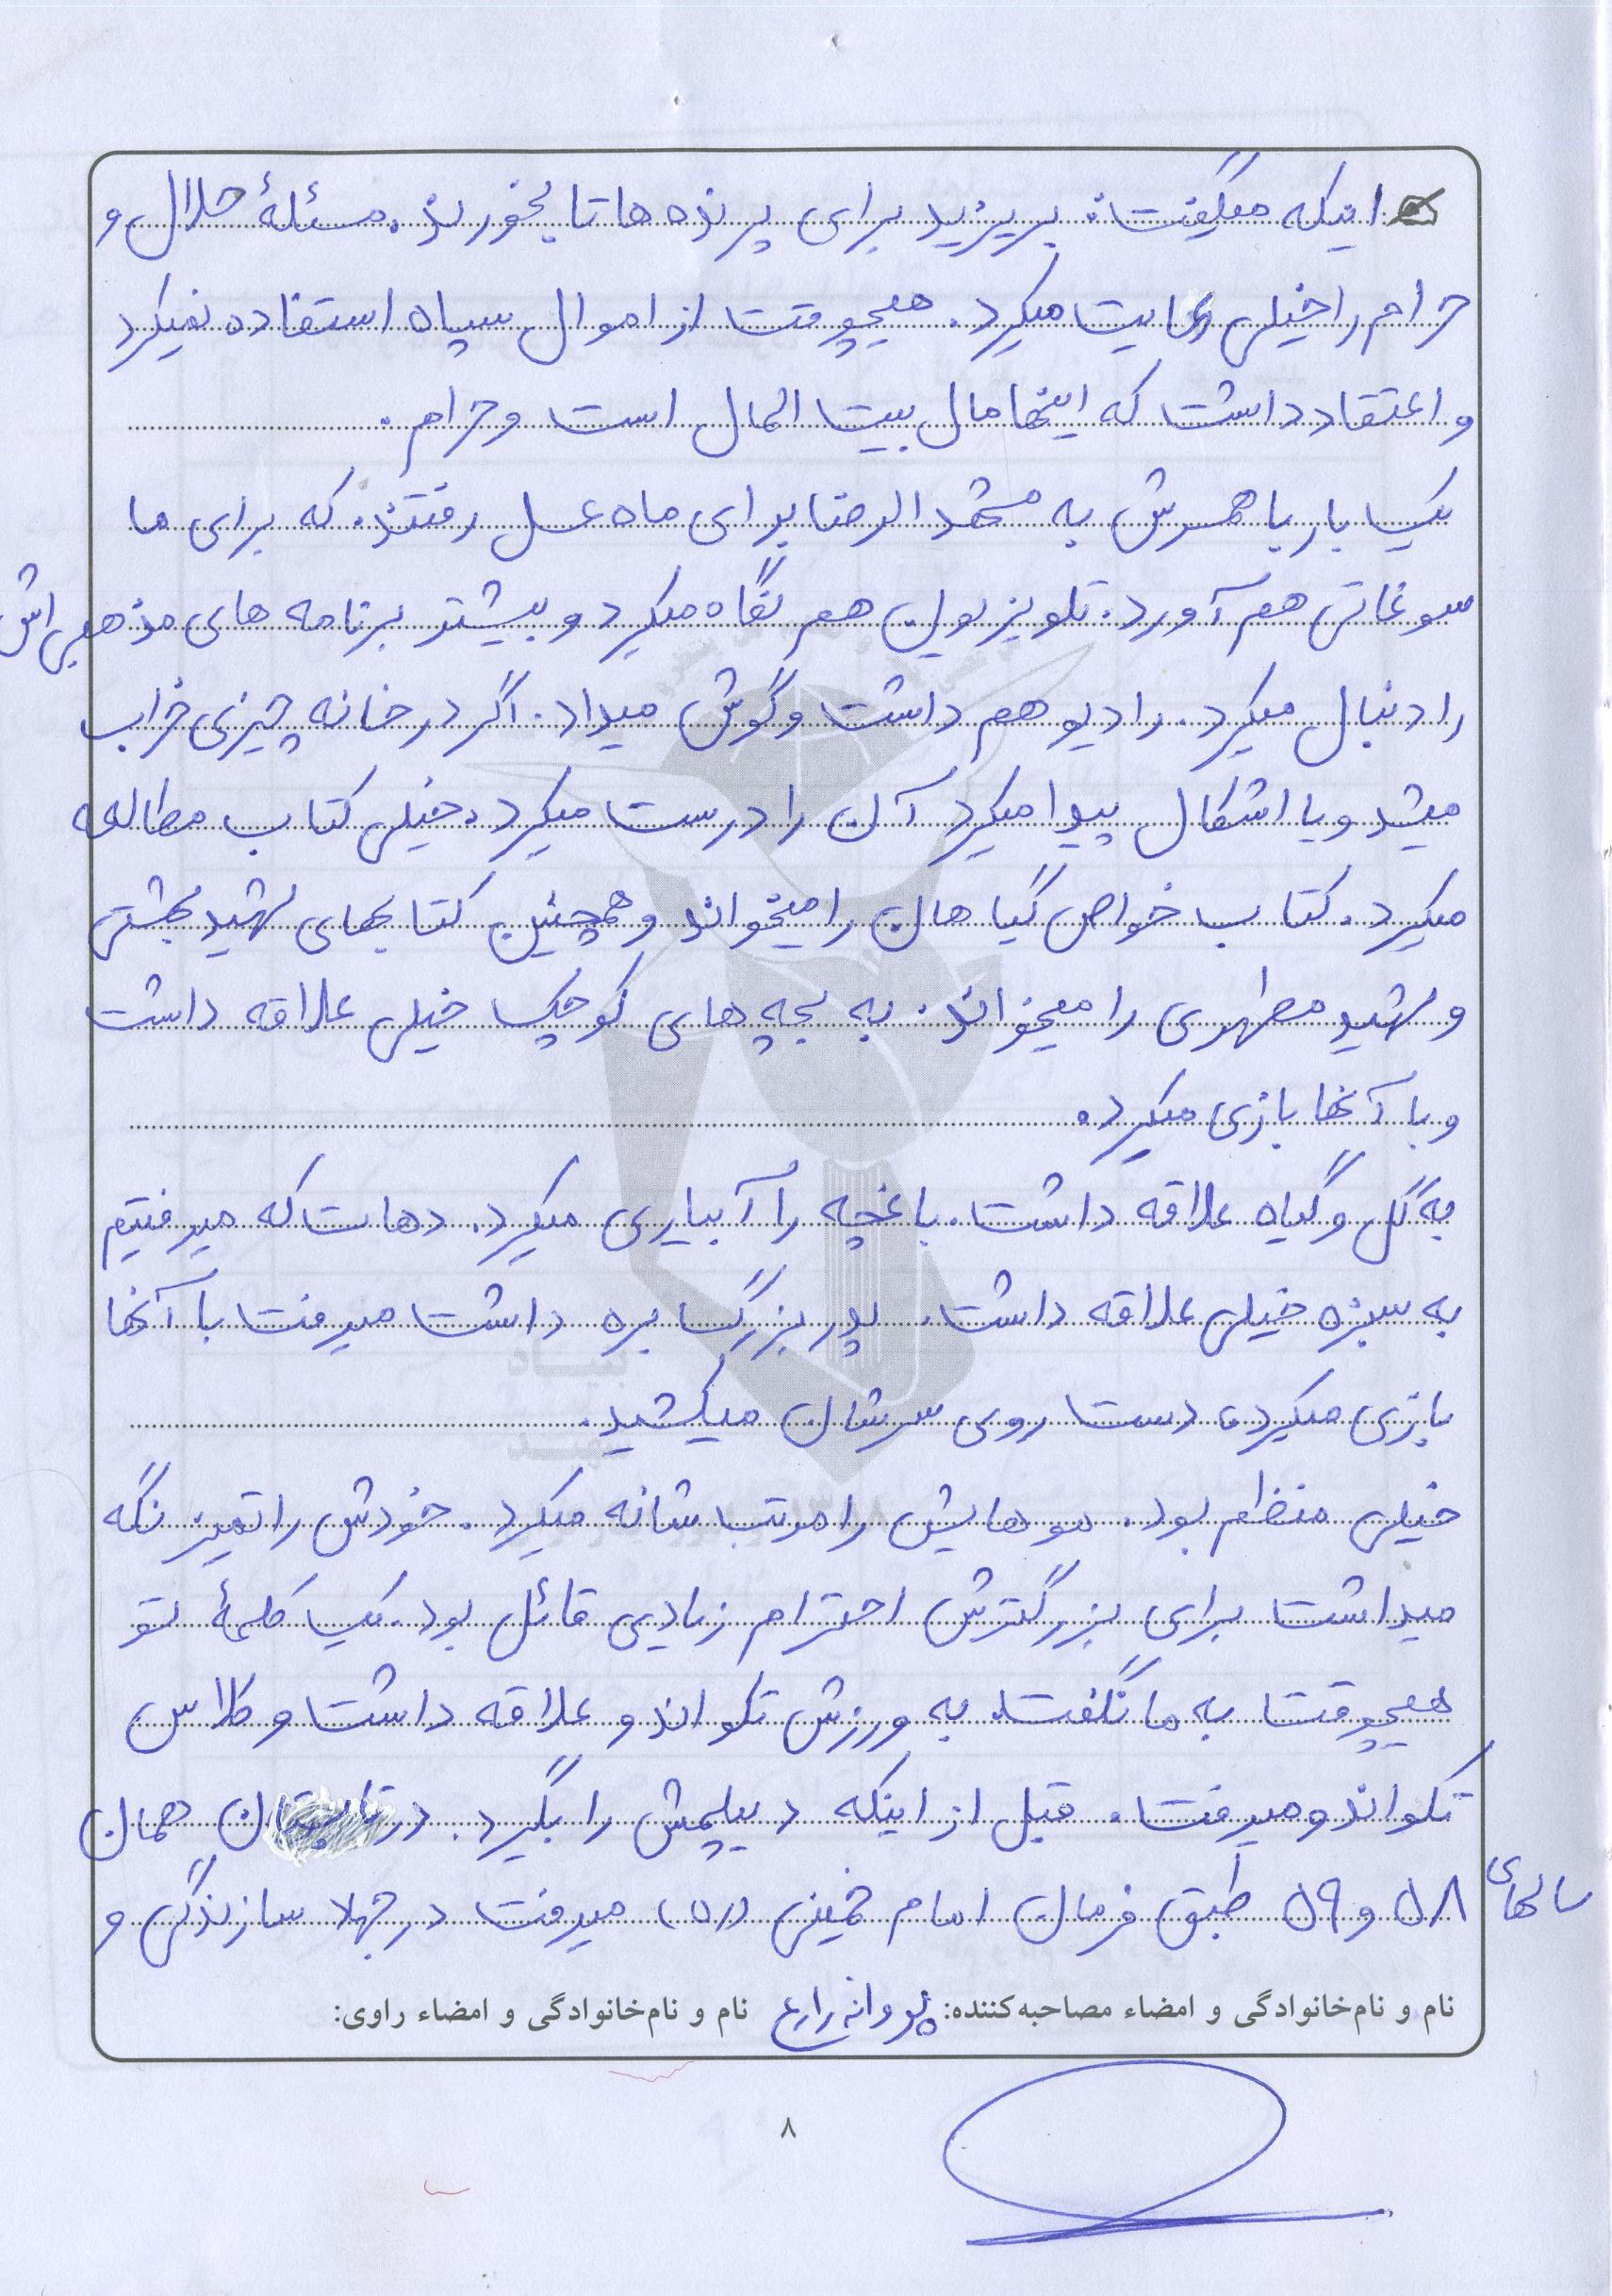 اینکه میگفت: بریزید برای پرنده ها تا بخورند. مسئلهٔ حلال و
حرام را خیلی رعایت میکرد. هیچوقت از اموال سپاه استفاده نمیکرد
و اعتقاد داشت که اینها مال بیت المال است و حرام.
یک بار با همسرش به مشهد الرضا برای ماه عسل رفتند. که برای ما
سوغاتی هم آورد. تلویزیون هم نگاه میکرد و بیشتر برنامه های مذهبی اش
را دنبال میکرد. رادیو هم داشت و گوش میداد. اگر در خانه چیزی خراب
میشد و یا اشکال پیدا میکرد آن را درست میکرد. خیلی کتاب مطالعه
میکرد. کتاب خواص گیاهان را میخواند و همچنین کتابهای شهید بهشتی
و شهید مطهری را میخواند. به بچه های کوچک خیلی علاقه داشت
و با آنها بازی میکرد.
به گل و گیاه علاقه داشت. باغچه را آبیاری میکرد. دهات که میرفتیم
به سبزه خیلی علاقه داشت. پدربزرگ بره داشت میرفت با آنها
بازی میکرد، دست روی سرشان میکشید.
خیلی منظم بود. موهایش را مرتب شانه میکرد. خودش را تمیز نگه
میداشت برای بزرگترش احترام زیادی قائل بود. یک کلمهٔ تو
هیچوقت به ما نگفت. به ورزش تکواندو علاقه داشت و کلاس
تکواندو میرفت. قبل از اینکه دیپلمش را بگیرد. در تابستان همان
سالهای ۵۸ و ۵۹ طبق فرمان امام خمینی (ره) میرفت در جهاد سازندگی و
نام و نام‌خانوادگی و امضاء مصاحبه‌کننده: پروانه زارع نام و نام‌خانوادگی و امضاء راوی:
۸